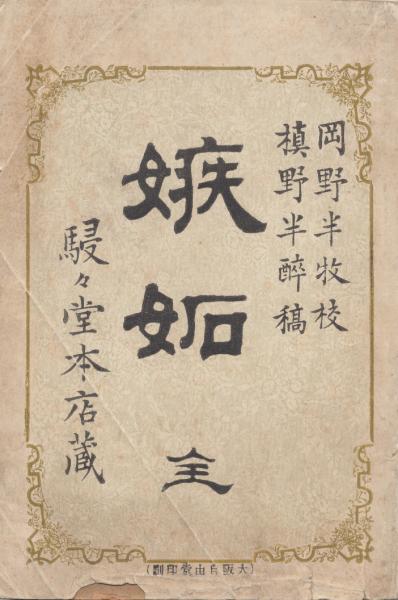 岡野半牧校
槙野半醉稿
嫉妬 全
駸々堂本店藏
(大阪自由堂印刷)